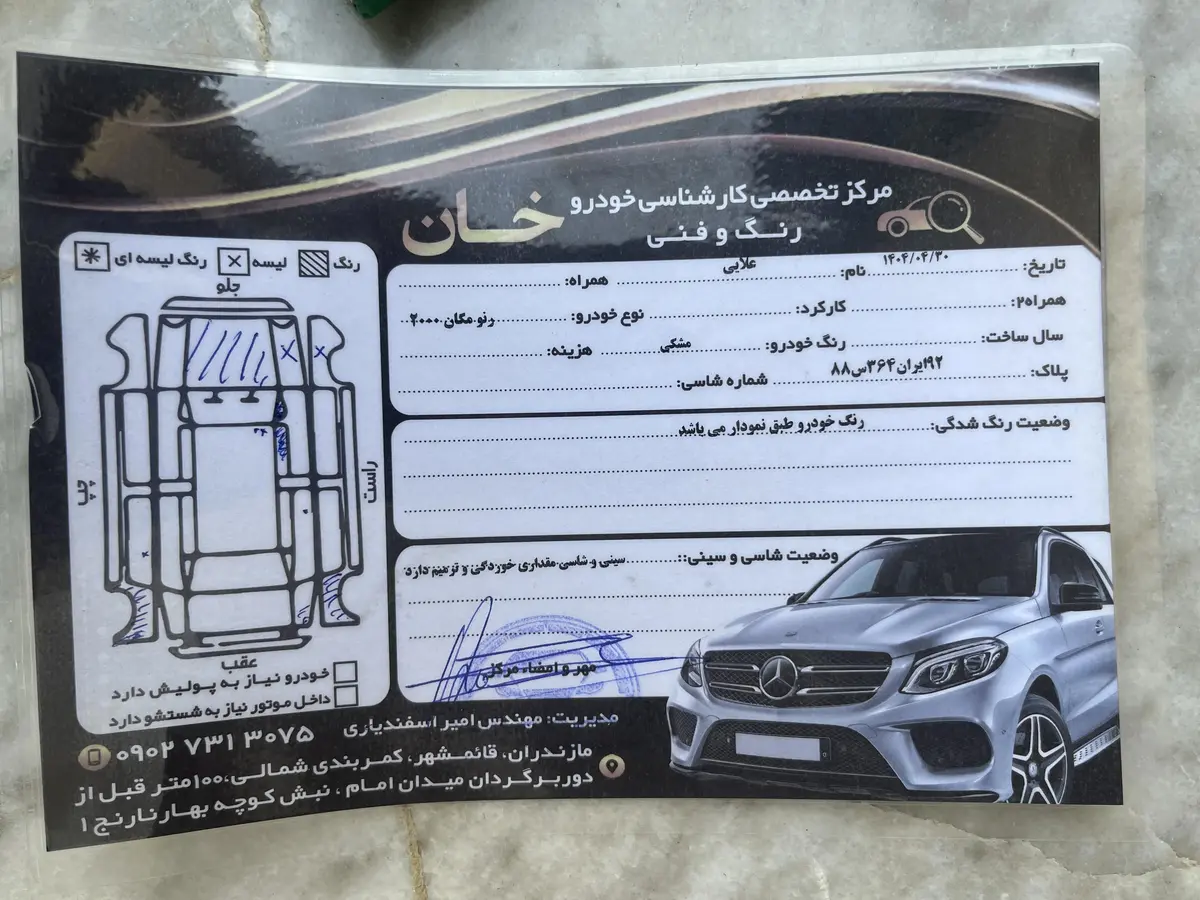 مرکز تخصصی کارشناسی خودرو خان
رنگ و فنی
تاریخ: ۱۴۰۴/۰۴/۳۰ نام: علایی همراه:
همراه۲: کارکرد: نوع خودرو: رنو مگان ۲۰۰۰
سال ساخت: رنگ خودرو: مشکی هزینه:
پلاک: ۹۲ایران۳۶۴س۸۸ شماره شاسی:
وضعیت رنگ شدگی: رنگ خودرو طبق نمودار می باشد
وضعیت شاسی و سینی:: سینی و شاسی مقداری خوردگی و ترمیم دارد
مهر و امضاء مرکز
رنگ لیسه رنگ لیسه ای
جلو
راست
چپ
عقب
خودرو نیاز به پولیش دارد
داخل موتور نیاز به شستشو دارد
مدیریت: مهندس امیر اسفندیاری ۰۹۰۲ ۷۳۱ ۳۰۷۵
مازندران، قائمشهر، کمربندی شمالی، ۱۰۰متر قبل از
دوربرگردان میدان امام ، نبش کوچه بهارنارنج ۱